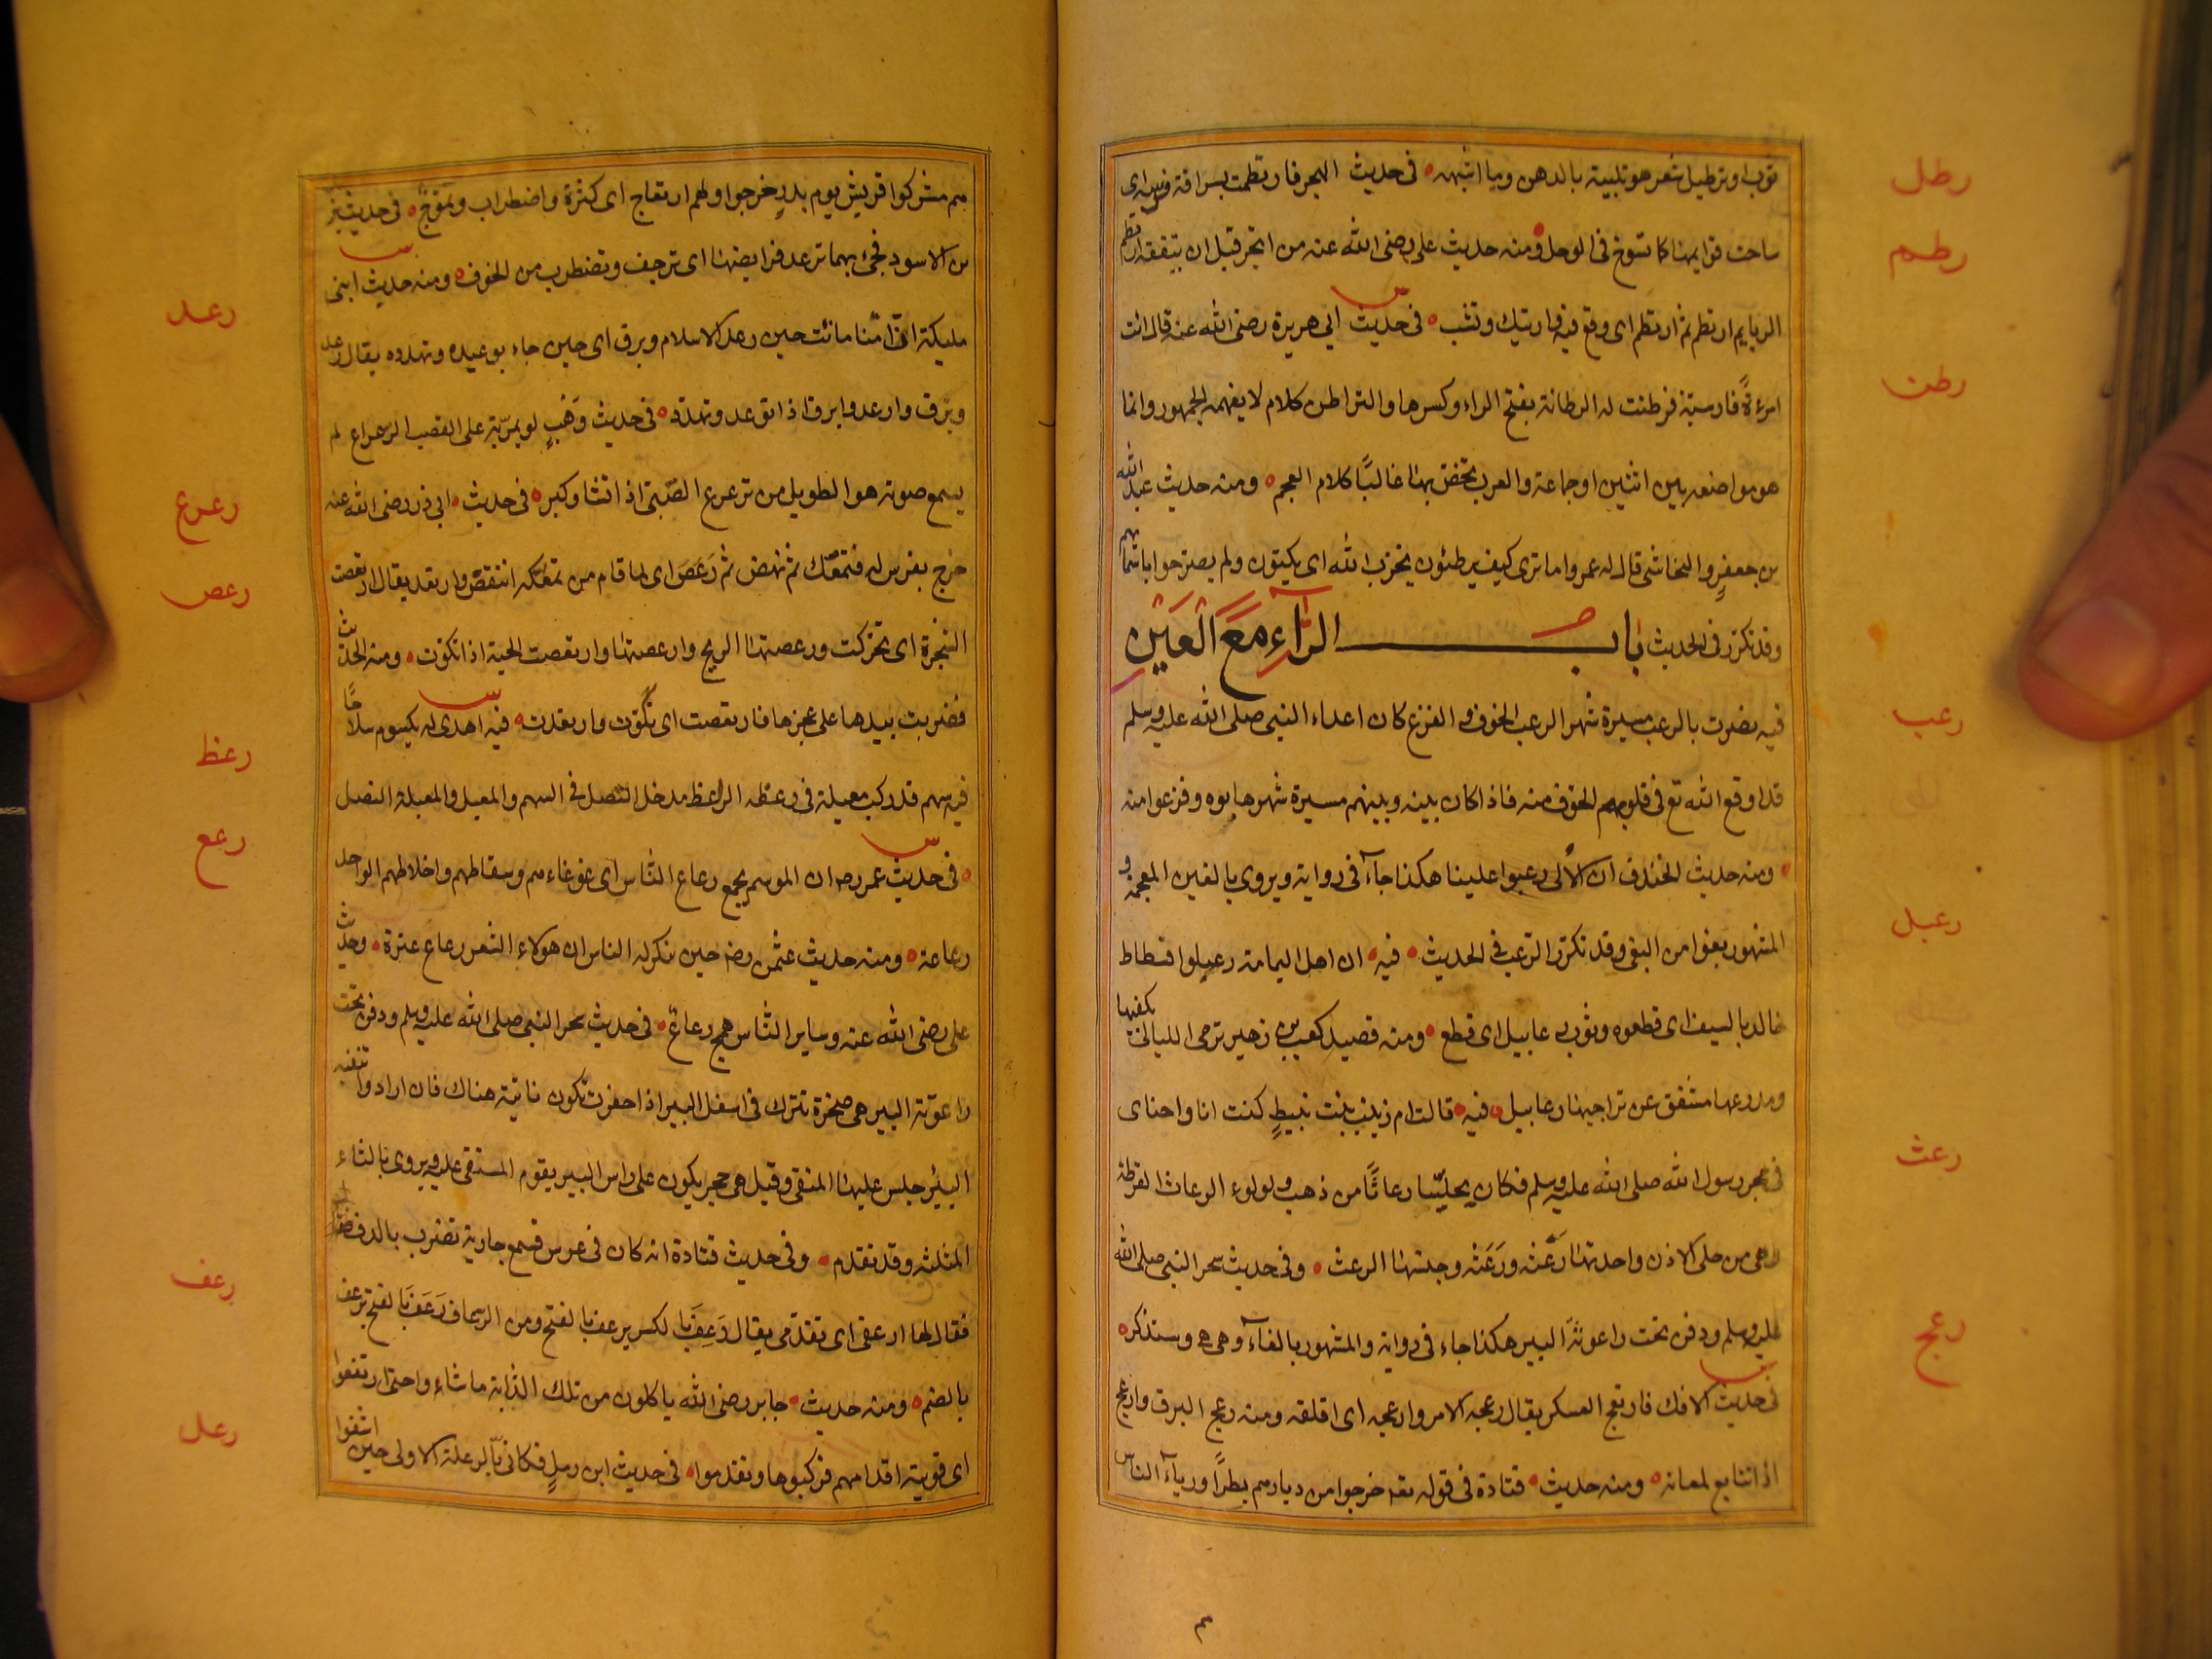 ثوب او ترطيل شعر هو تليينه بالدهن وما اشبهه في حديث الهجرة فارتطمت بسراقة فرسه اى
رطل
ساخت قوايمها كما تسوخ فى الوحل ومنه حديث على رضى الله عنه من اتجر قبل ان يتفقه ارتطم
رطم
الربا ثم ارتطم ثم ارتطم اى وقع فيه وارتبك ونشب فى حديث ابي هريرة رضى الله عنه قال اتت
امرءة فارسية فرطنت له الرطانة بفتح الراء وكسرها والتراطن كلام لا يفهمه الجمهور وانما
رطن
هو مواضعه بين اثنين او جماعة والعرب تخص بها غالبًا كلام العجم ومنه حديث عبد الله
بن جعفر والنجاشى قال له عمرو اما ترى كيف يرطنون بحزب الله اى يكنون ولم يصرحوا باسمائهم
وقد تكرر فى الحديث باب الراء مع العين
فيه نصرت بالرعب مسيرة شهر الرعب الخوف والفزع كان اعداء النبى صلى الله عليه وسلم
رعب
قد اوقع الله تع فى قلوبهم الخوف منه فاذا كان بينه وبينهم مسيرة شهر هابوه وفزعوا منه
ومنه حديث الخندق ان الالى رعبوا علينا هكذا جاء فى رواية ويروى بالغين المعجمة و
المشهور بغوا من البغى وقد تكرر الرعب فى الحديث فيه ان اهل اليمامة رعبلوا فسطاط
رعبل
خالد بالسيف اى قطعوه وثوب رعابيل اى قطع ومنه قصيد كعب بن زهير ترمى اللبان بكفيها
ومدرعها مشقق عن تراقيها رعابيل فيه قالت ام زينب بنت نبيط كنت انا واختاى
فى حجر رسول الله صلى الله عليه وسلم فكان يحلينا رعاثًا من ذهب ولولوء الرعاث القرطة
رعث
وهى من حلى الاذن واحدتها رعثه ورعثه وجنسها الرعث وفى حديث سحر النبى صلى الله
عليه وسلم ودفن تحت راعوثة البير هكذا جاء فى رواية والمشهور بالفاء وهى هى وستذكر
رعج
فى حديث الافك فارتعج العسكر يقال رعجه الامر وارعجه اى اقلقه ومنه رعج البرق وارعج
اذا تتابع لمعانه ومنه حديث قتادة فى قوله تعه خرجوا من ديارهم بطرًا ورياء الناس
هم مشركوا قريش يوم بدر خرجوا ولهم ارتعاج اى كثرة واضطراب وتموج فى حديث يزيد
بن الاسود فجئ بهما ترعد فرايصهما اى ترجف وتضطرب من الخوف ومنه حديث ابنى
رعد
مليكة ان امنا ماتت حين رعد الاسلام وبرق اى حين جاء بوعيده وتهدده يقال رعد
وبرق وارعد وابرق اذا توعد وتهدد فى حديث وهب لو يمر به على القصب الرعراع لم
يسمع صوته هو الطويل من ترعرع الصبى اذا نشا وكبر فى حديث ابى ذر رضى الله عنه
رعرع
خرج بفرس له فتمعك ثم نهض ثم رعص اى لما قام من تمعكه انتفض وارتعد يقال ارتعصت
رعص
الشجرة اى تحركت ورعصتها الريح وارعصتها وارتعصت الحية اذا تكوت ومنه الحديث
فضربت بيدها على عجزها فارتعصت اى تلوت وارتعدت فيه اهدى له يكسوم سلاحًا
فيه سهم قد ركب معبلة فى رعظه الرعظ مدخل النصل فى السهم والمعبل والمعبلة النصل
رعظ
فى حديث عمر رضه ان الموسم يجمع رعاع الناس اى غوغاءهم وسقاطهم واخلاطهم الواحد
رعع
رعاعة ومنه حديث عثمن رضه حين تنكر له الناس ان هولاء النفر رعاع غثرة وحديث
على رضى الله عنه وساير الناس همج رعاع فى حديث سحر النبى صلى الله عليه وسلم ودفن تحت
راعوفة البير هى صخرة تترك فى اسفل البير اذا حفرت تكون ناتية هناك فان ارادوا تنقية
البئر جلس عليها المنقى وقيل هى حجر يكون على راس البير يقوم المستقى عليه ويروى بالثاء
المثلثه وقد تقدم وفى حديث قتادة انه كان فى عرس فسمع جارية تضرب بالدف
رعف
فقال لها ارعفى اى تقدمى يقال رعف بالكسر يرعف بالفتح ومن الرعاف رعف بالفتح يرعف
بالضم ومنه حديث جابر رضى الله ياكلون من تلك الدابة ما شاء واحتى ارتعفوا
اى قوية اقدامهم فركبوها وتقدموا فى حديث ابن زمل فكانى بالرعلة الاولى حين اشفوا
رعل